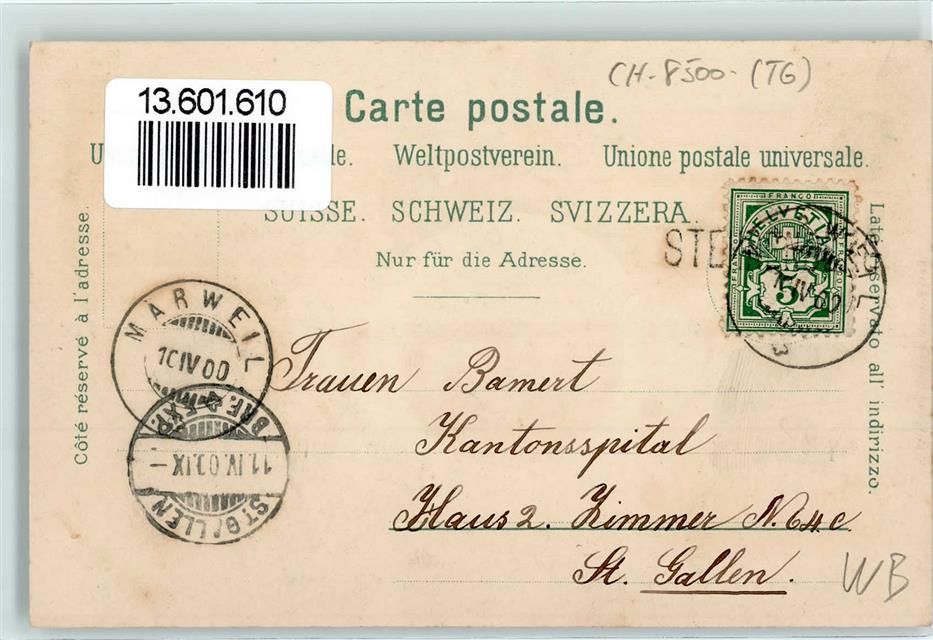 CH-8500-(TG)
13.601.610
Carte postale.
Weltpostverein. Unione postale universale.
SUISSE. SCHWEIZ. SVIZZERA.
Nur für die Adresse.
Côté réservé à l'adresse.
Lato riservato all' indirizzo.
FRANCO
HELVETIA
5
MÄRWEIL
10 IV 00
BRF. EXP.
11.IV.00.IX-
ST. GALLEN
Frauen Bamert
Kantonsspital
Haus 2. Zimmer N. 64c
St. Gallen.
WB